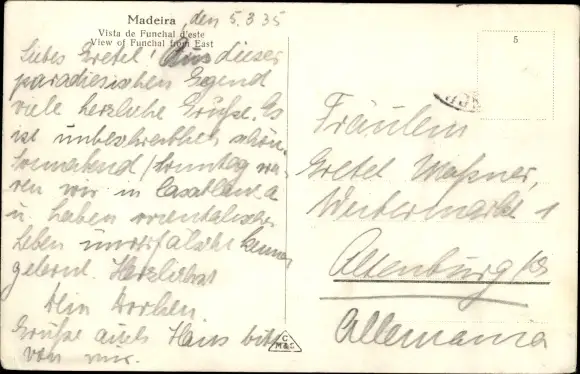 Madeira, den 5.3.35
Vista de Funchal d'este
View of Funchal from East
Liebes Gretel! Aus dieser
paradiesischen Egend
viele herzliche Grüße. Es
ist unbeschreiblich schön.
Sonnabend/Sonntag wa-
ren wir in Casablanca
u. haben orientalisches
Leben unverfälscht kennen
gelernt. Herzlichst
Dein
Grüße auch Hans bitte
von mir.
5
C
M&C
Fräulein
Gretel
1
Altenburg
Allemania